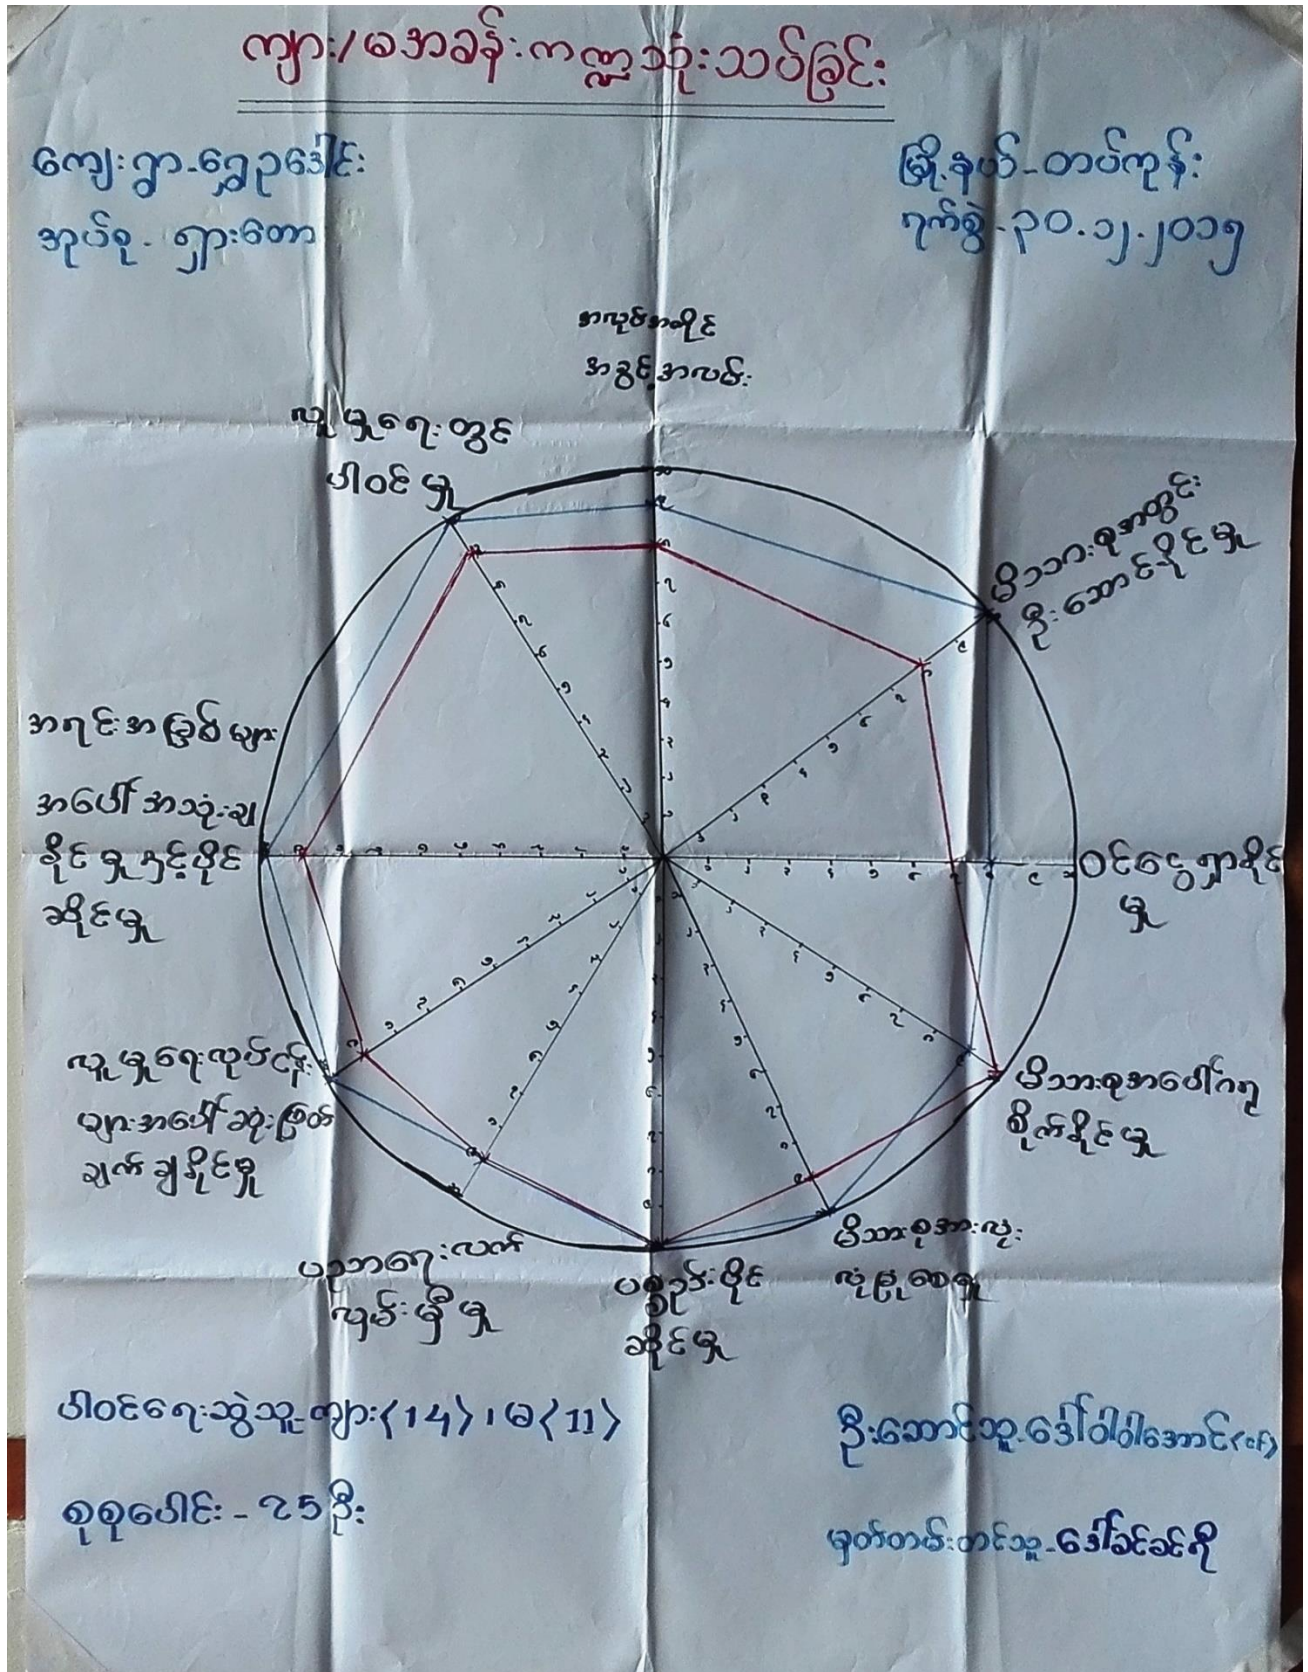 ကျား/မအခန်းကဏ္ဍသုံးသပ်ခြင်း
ကျေးရွာ-ရွှေဥဒေါင်း
အုပ်စု - ရှားတော
မြို့နယ်-တပ်ကုန်း
ရက်စွဲ-၃၀.၁၂.၂၀၁၅
အလုပ်အကိုင်
အခွင့်အလမ်း
လူမှုရေးတွင်
ပါဝင်မှု
မိသားစုအတွင်း
ဦးဆောင်နိုင်မှု
အရင်းအမြစ်များ
အပေါ်အသုံးချ
နိုင်မှုနှင့်ပိုင်
ဆိုင်မှု
ဝင်ငွေရှာနိုင်
မှု
လူမှုရေးလုပ်ငန်း
များအပေါ်ဆုံးဖြတ်
ချက်ချနိုင်မှု
မိသားစုအပေါ်ဂရု
စိုက်နိုင်မှု
ပညာရေးလက်
လှမ်းမှီမှု
ပစ္စည်းပိုင်
ဆိုင်မှု
မိသားစုအားလုံး
လုံခြုံစေမှု
ပါဝင်ရေးဆွဲသူ-ကျား<14>၊ မ<11>
စုစုပေါင်း - 25 ဦး
ဦးဆောင်သူ-ဒေါ်ဝါဝါအောင်<CF>
မှတ်တမ်းတင်သူ-ဒေါ်ခင်ခင်စို